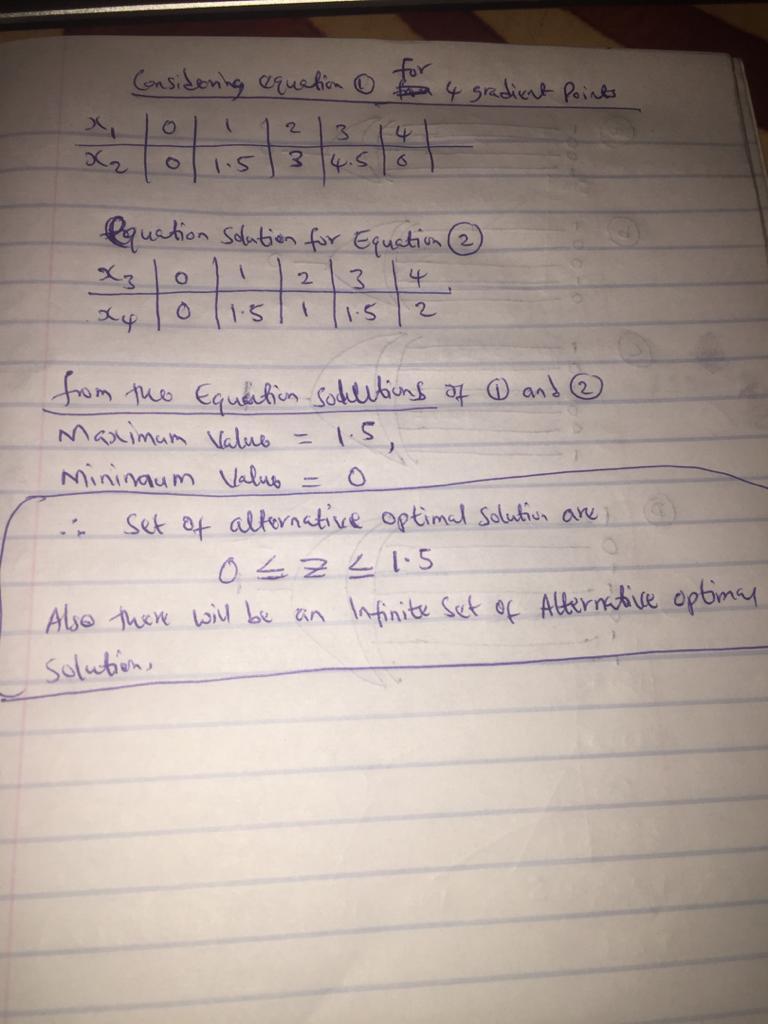 Considering equation ① for 4 gradient Points
x₁ | 0 | 1 | 2 | 3 | 4 |
x₂ | 0 | 1.5 | 3 | 4.5 | 6 |
Equation Solution for Equation ②
x₃ | 0 | 1 | 2 | 3 | 4
x₄ | 0 | 1.5 | 1 | 1.5 | 2
from the Equation solutions of ① and ②
Maximum Value = 1.5,
Minimum Value = 0
∴ Set of alternative optimal Solution are
0 ≤ Z ≤ 1.5
Also there will be an Infinite Set of Alternative optimal
Solution.